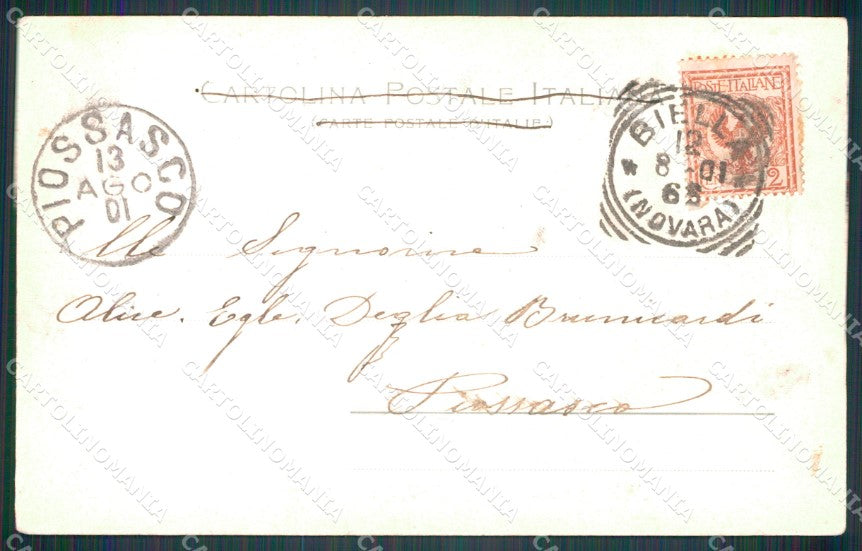 CARTOLINA POSTALE ITALIANA
CARTE POSTALE D'ITALIE
POSTE ITALIANE
2
BIELLA
12
8-01
6S
(NOVARA)
PIOSSASCO
13
AGO
01
Alle Signorine
Alice. Egle. Deglia Brunicardi
Piossasco
CARTOLINOMANIA